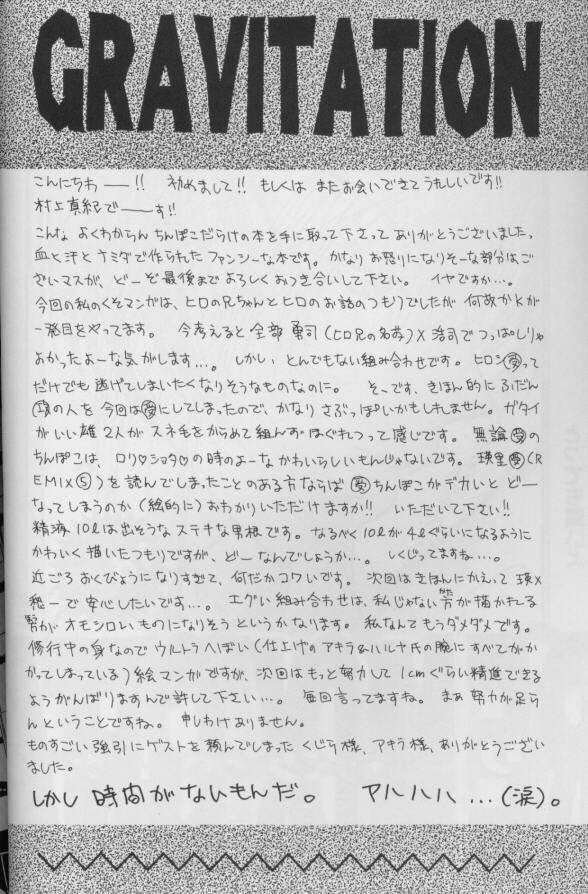 GRAVITATION
こんにちわ――!! 初めまして!! もしくは またお会いできて うれしいです!!
村上真紀で――す!!
こんな よくわからん ちんぽこだらけの本を手に取って下さって ありがとうございました。
血と汗とナミダで作られた ファンシーな本です。 かなり お怒りになりそーな部分はご
ざいマスが、どーぞ最後まで よろしくおつき合いして下さい。 イヤですか…。
今回の私のくそマンガは、ヒロの兄ちゃんとヒロのお話のつもりでしたが 何故かKが
一発目をやってます。 今考えると全部 勇司(ヒロ兄の名前)×浩司で つっぱしりゃ
よかったよーな気がします…。 しかし、とんでもない組み合わせです。ヒロシ受って
だけでも 逃げてしまいたくなりそうなものなのに。 そーです、きほん的に ふだん
攻の人を 今回は受にしてしまったので、かなり さぶっぽいかもしれません。ガタイ
がいい雄2人が スネ毛をからめて組んずほぐれつって感じです。 無論受の
ちんぽこは、ロリ♡ショタ♡の時のよーな かわいらしいもんじゃないです。 瑛里受(R
EMIX⑤)を読んでしまったことのある方ならば 受ちんぽこが デカいと どー
なってしまうのか(絵的に)おわかりいただけますか!! いただいて下さい!!
精液10lは出そうな ステキな男根です。 なるべく10lが4lぐらいになるように
かわいく描いたつもりですが、どーなんでしょうか…。 しくじってますね…。
近ごろ おくびょうになりすぎて、何だかコワいです。 次回は きほんにかえって 瑛×
愁一で 安心したいです…。 エグい組み合わせは、私じゃない方が描かれる
方がオモシロいものになりそう というかなります。 私なんてもうダメダメです。
修行中の身なので ウルトラへぼい(仕上げのアキラ&ハルナ氏の腕にすべてがか
かってしまっている)絵マンガですが、次回はもっと努力して 1cmぐらい精進できる
ようがんばりますんで許して下さい…。 毎回言ってますね。 まぁ 努力が足ら
んということですね。 申しわけありません。
ものすごい強引にゲストを頼んでしまった くじら様、アキラ様、ありがとうござい
ました。
しかし 時間がないもんだ。 アハハハ…(涙)。